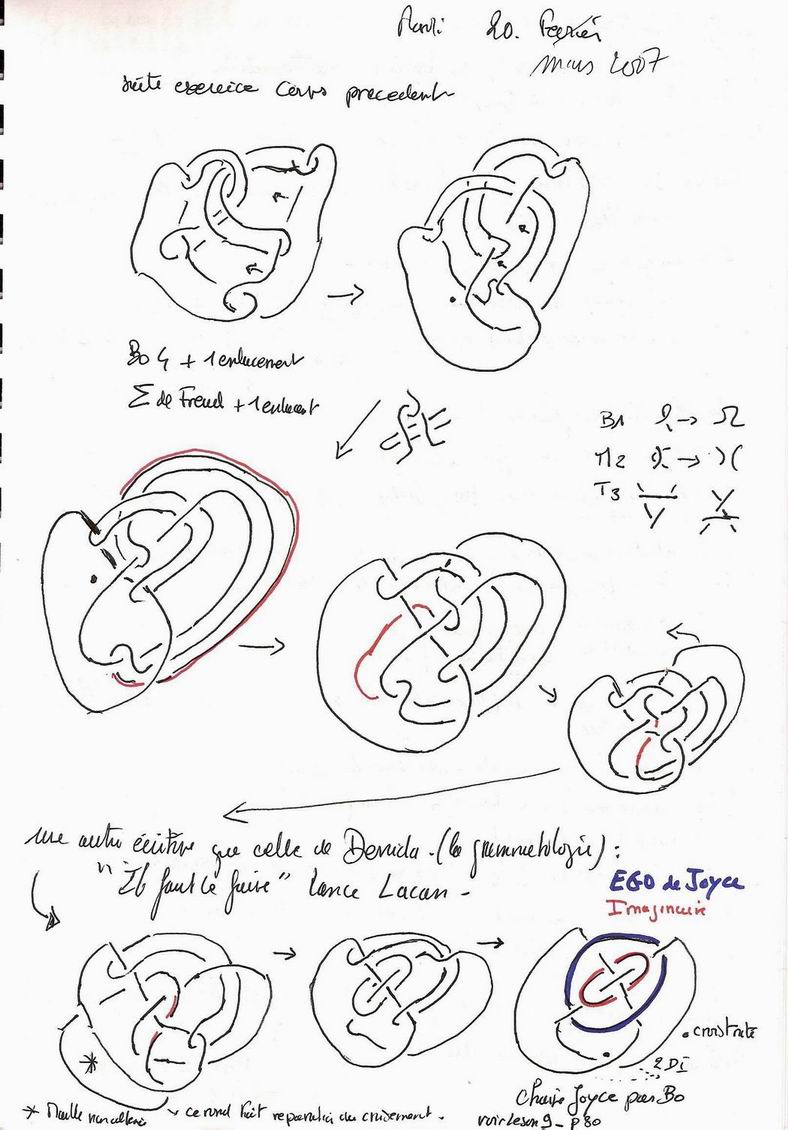 20. Février
mars 2007
suite exercice cours precedent
Bo 4 + 1 enlacement
Σ de Freud + 1 enlacement
B1
M2
T3
une autre écriture que celle de Derrida. (la grammatologie) :
"Il faut le faire" lance Lacan -
EGO de Joyce
Imaginaire
2 DI
Chaine Joyce pas Bo
* Maille non alternée ce rond fait reparation du croisement.
voir leson 9 - P 80